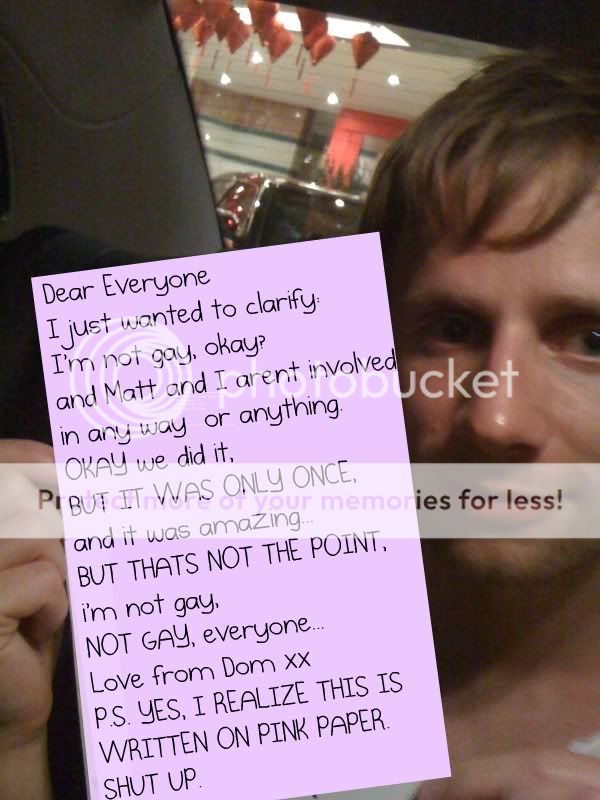 Dear Everyone
I just wanted to clarify:
I'm not gay, okay?
and Matt and I arent involved
in any way or anything.
OKAY we did it,
BUT IT WAS ONLY ONCE,
and it was amazing...
BUT THATS NOT THE POINT,
i'm not gay,
NOT GAY, everyone...
Love from Dom xx
P.S. YES, I REALIZE THIS IS
WRITTEN ON PINK PAPER.
SHUT UP.
photobucket
Protect more of your memories for less!